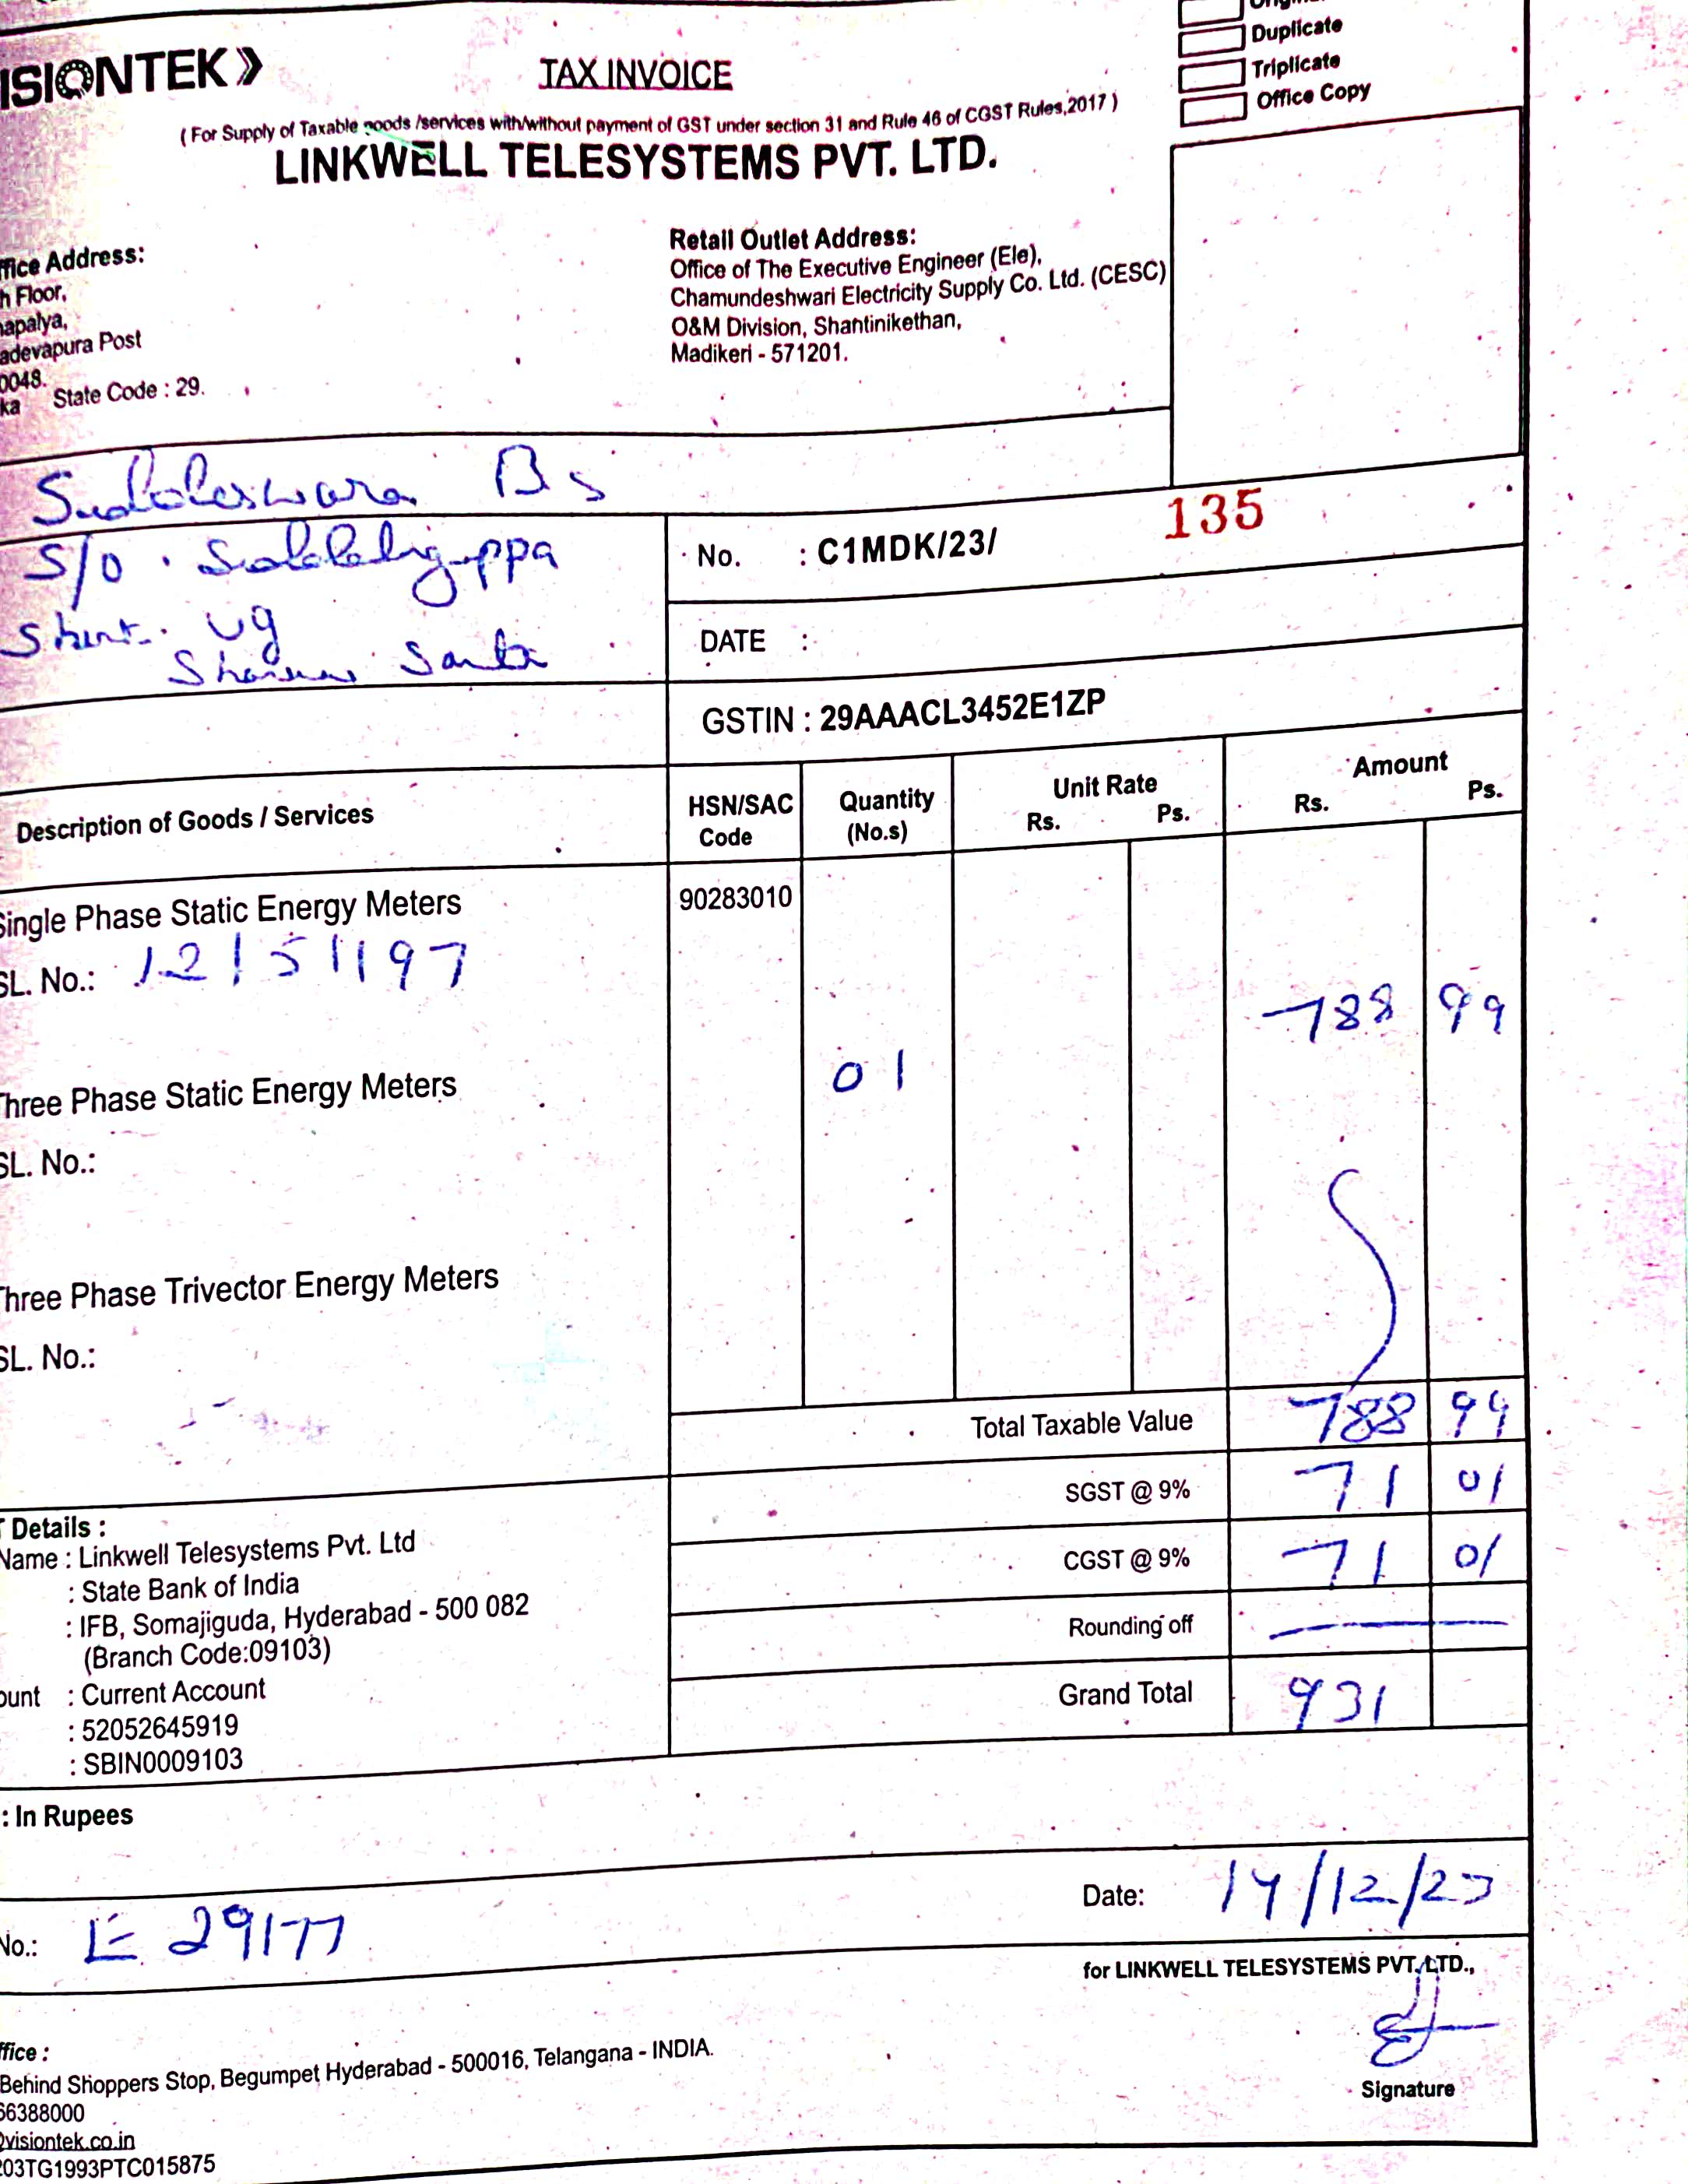 ISIONTEK
TAX INVOICE
Duplicate
Triplicate
Office Copy
( For Supply of Taxable goods /services with/without payment of GST under section 31 and Rule 46 of CGST Rules,2017 )
LINKWELL TELESYSTEMS PVT. LTD.
ffice Address:
h Floor,
apalya,
adevapura Post
0048.
ka State Code : 29.
Retail Outlet Address:
Office of The Executive Engineer (Ele),
Chamundeshwari Electricity Supply Co. Ltd. (CESC)
O&M Division, Shantinikethan,
Madikeri - 571201.
B S
S/o
No. : C1MDK/23/ 135
DATE :
GSTIN : 29AAACL3452E1ZP
Description of Goods / Services HSN/SAC Code Quantity (No.s) Unit Rate Rs. Ps. Amount Rs. Ps.
Single Phase Static Energy Meters 90283010
SL. No.: 12151197
788 99
01
Three Phase Static Energy Meters
SL. No.:
Three Phase Trivector Energy Meters
SL. No.:
Total Taxable Value 788 99
SGST @ 9% 71 01
CGST @ 9% 71 01
Rounding off
Grand Total 931
Details :
Name : Linkwell Telesystems Pvt. Ltd
: State Bank of India
: IFB, Somajiguda, Hyderabad - 500 082
(Branch Code:09103)
ount : Current Account
: 52052645919
: SBIN0009103
: In Rupees
No.: E 29177
Date: 14/12/23
for LINKWELL TELESYSTEMS PVT. LTD.,
Signature
ffice :
Behind Shoppers Stop, Begumpet Hyderabad - 500016, Telangana - INDIA.
66388000
@visiontek.co.in
203TG1993PTC015875